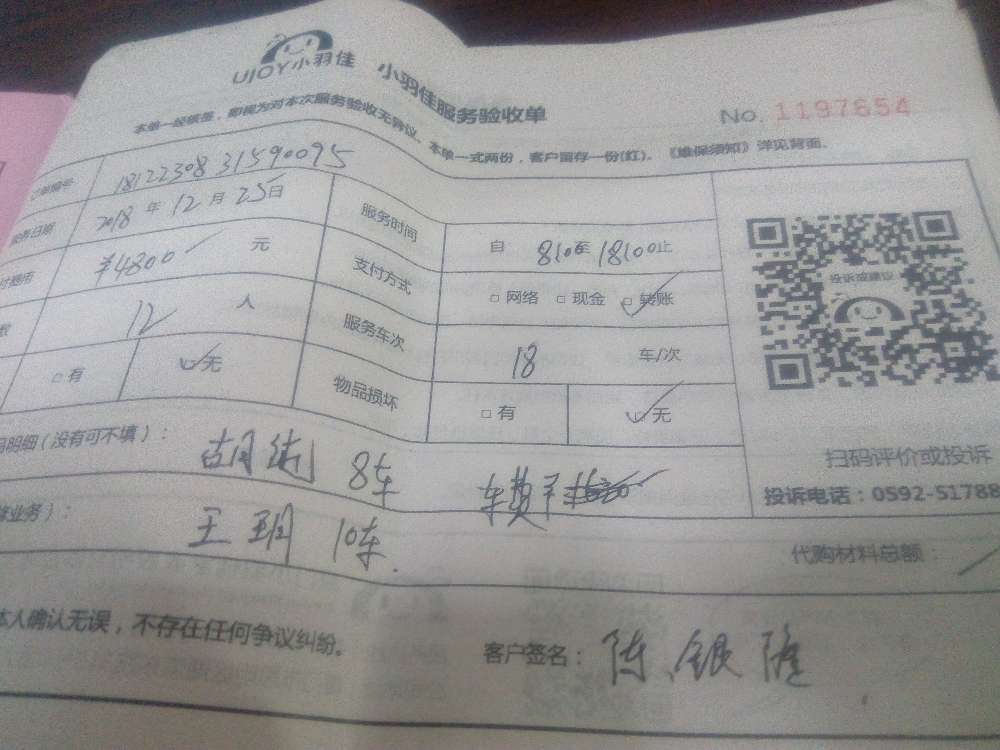 UJOY小羽佳 小羽佳服务验收单
No. 1197654
本单一经核签，即视为对本次服务验收无争议。本单一式两份，客户留存一份(红)。《维保须知》详见背面。
订单编号 1812230831590095
服务日期 2018年12月25日 服务时间 自 8:10至18:10止
付费用 ¥4800 元 支付方式 □网络 □现金 ☑转账
数 12 人 服务车次 18 车/次
□有 ☑无 物品损坏 □有 ☑无
投诉或建议
扫码评价或投诉
投诉电话：0592-51788
明细（没有可不填）： 胡 8车 车费
业务）： 王玥 10车
代购材料总额：
本人确认无误，不存在任何争议纠纷。 客户签名：陈银隆